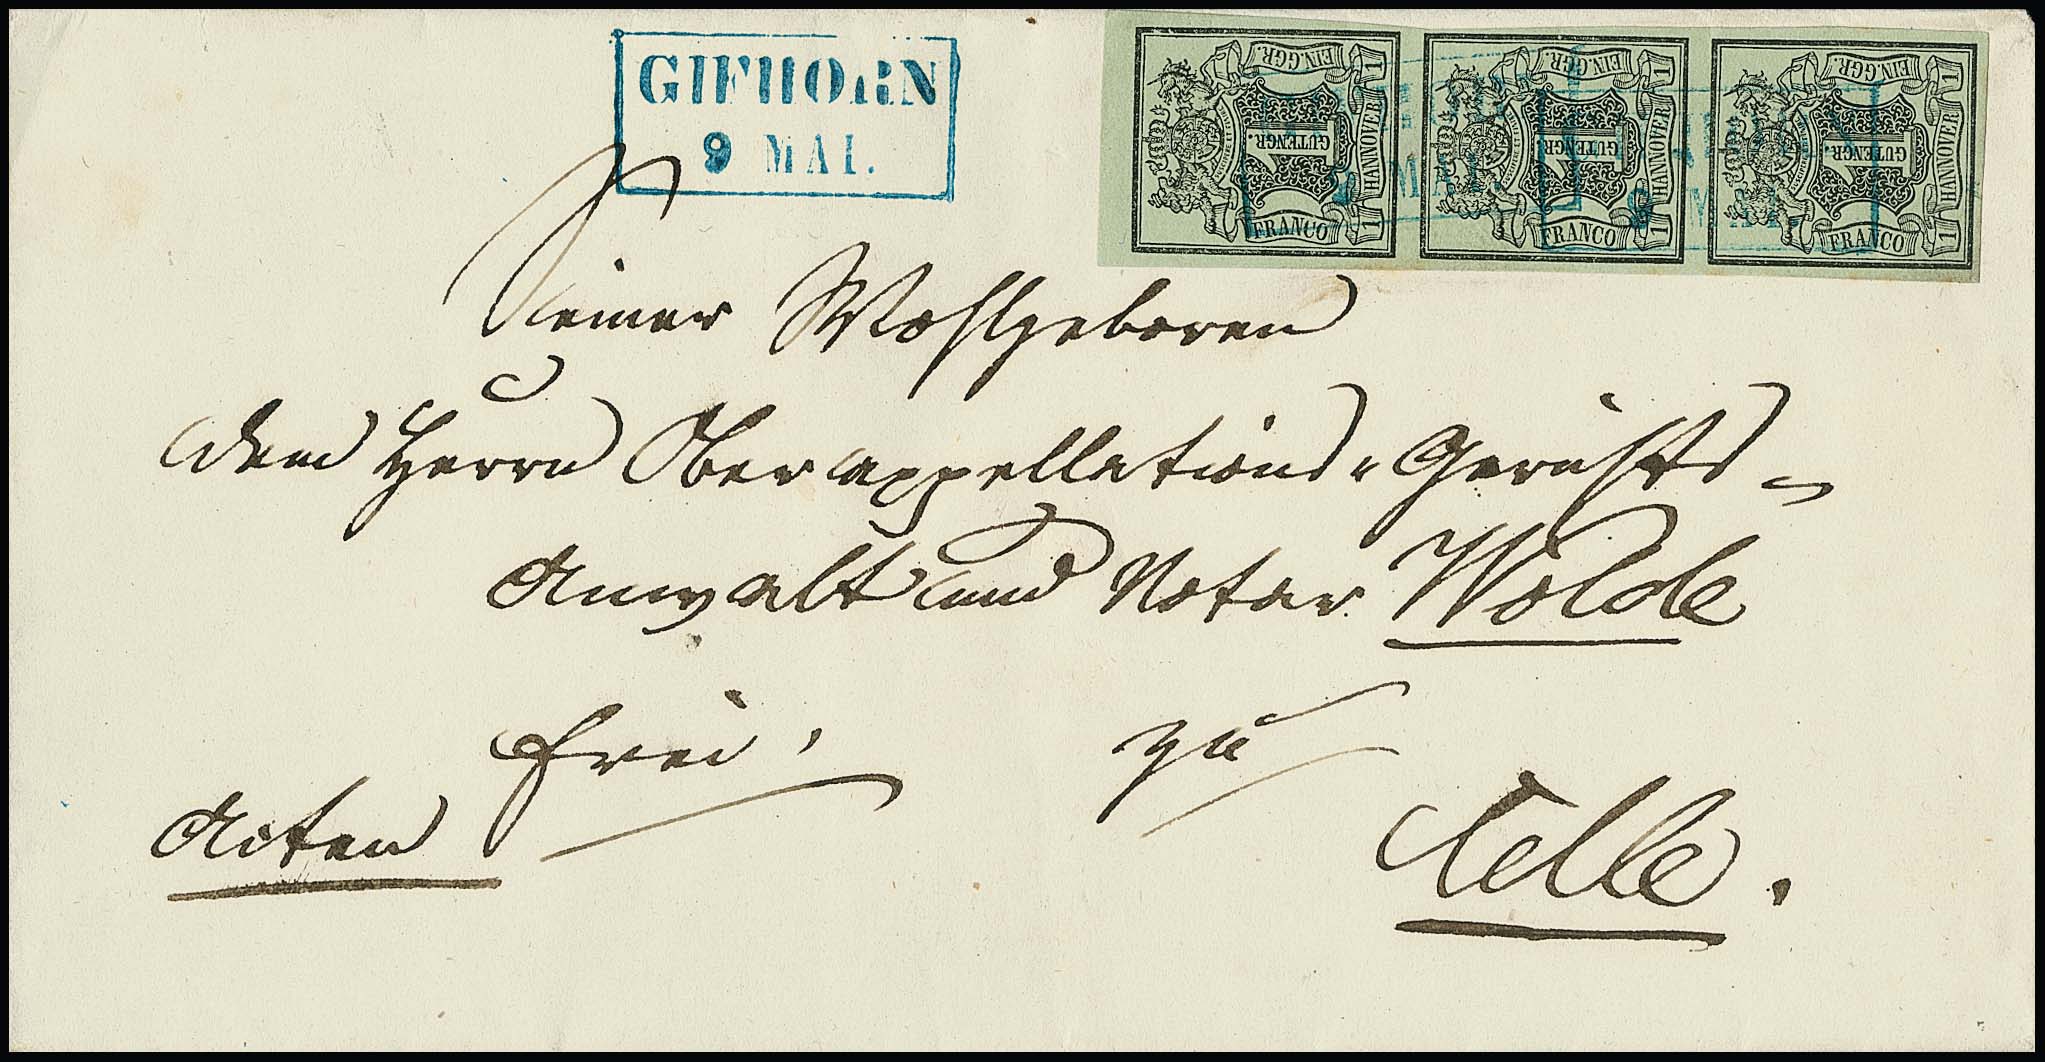 GIFHORN
9 MAI.
EIN.GGR.
1
1
GUTENGR.
HANNOVER
FRANCO
1
EIN.GGR.
1
1
GUTENGR.
HANNOVER
FRANCO
1
EIN.GGR.
1
1
GUTENGR.
HANNOVER
FRANCO
1
9 MAI.
9 MAI
Seiner Wohlgeboren
dem Herrn Oberappellations-Gerichts-
Anwalt und Notar Wolde
frei.
zu
Acten
Celle.